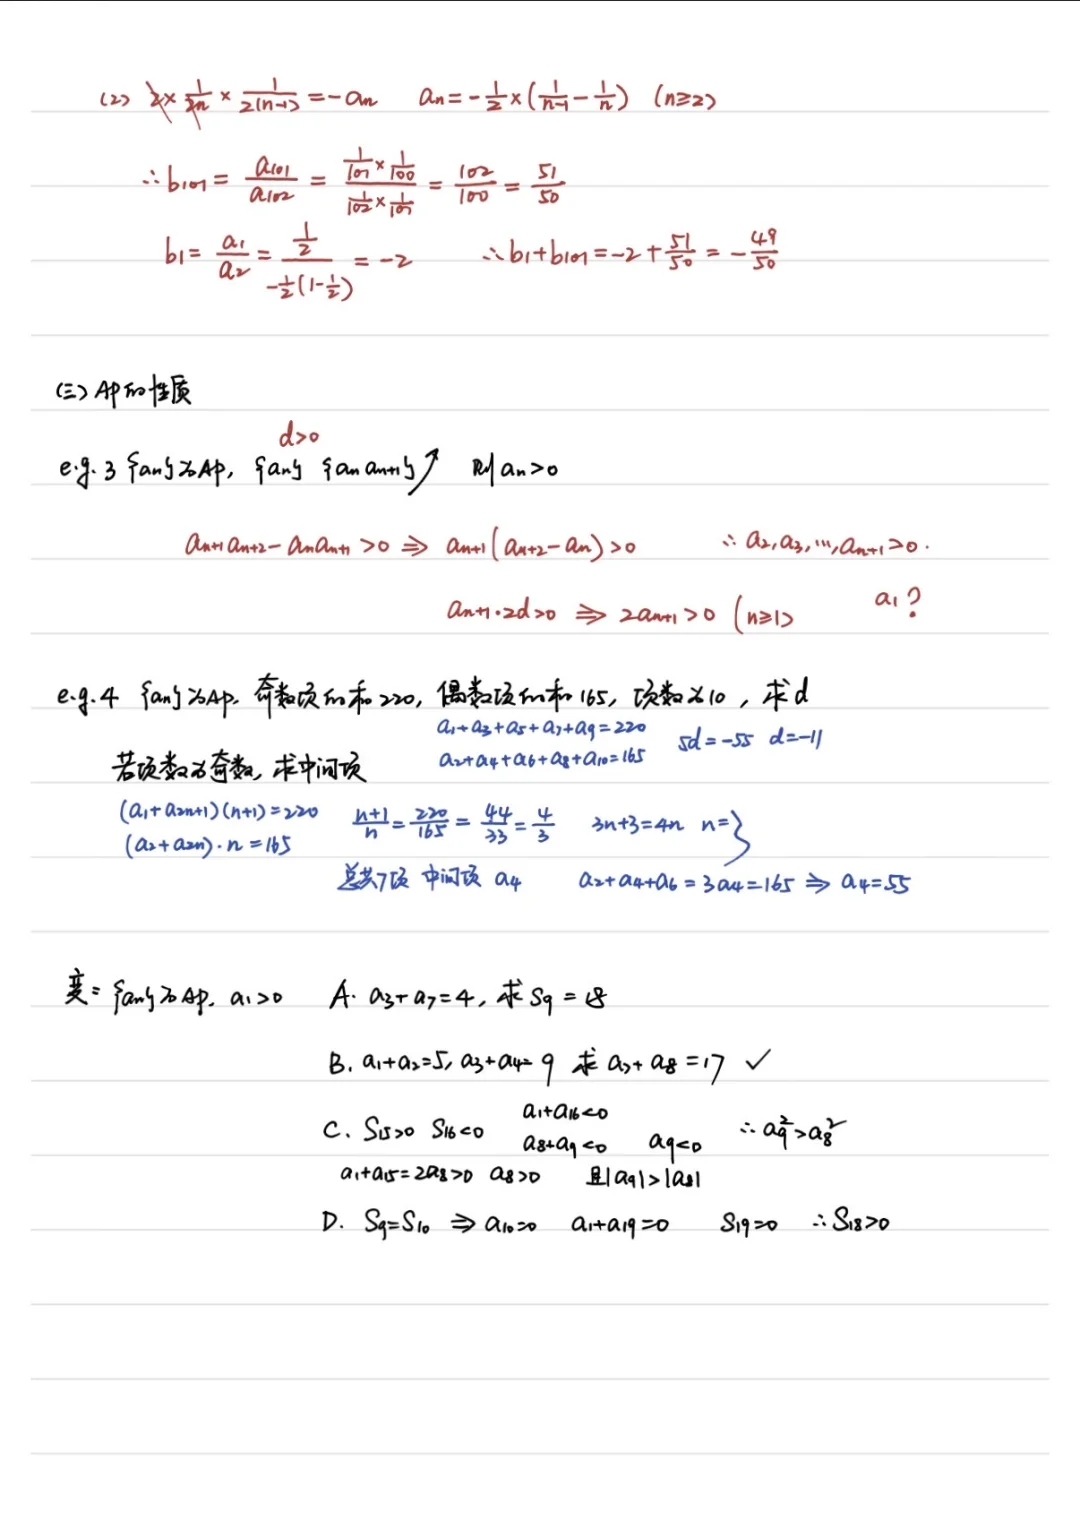 (2) 2×1/2n×1/2(n-1)=-an an=-1/2×(1/n-1-1/n) (n≥2)
∴b101=a101/a102=(1/101×1/100)/(1/102×1/101)=102/100=51/50
b1=a1/a2=(1/2)/(-1/2(1-1/2))=-2 ∴b1+b101=-2+51/50=-49/50
(三) AP的性质
d>0
e.g.3 {an}为AP, {an} {an an+1}↗ 则an>0
an+1an+2-anan+1>0⇒an+1(an+2-an)>0 ∴a2,a3,…,an+1>0.
an+1·2d>0⇒2an+1>0 (n≥1) a1?
e.g.4 {an}为AP. 奇数项的和220, 偶数项的和165, 项数为10, 求d
a1+a3+a5+a7+a9=220
5d=-55 d=-11
a2+a4+a6+a8+a10=165
若项数为奇数, 求中间项
(a1+a2n+1)(n+1)=220
(a2+a2n)·n=165
n+1/n=220/165=44/33=4/3 3n+3=4n n=3
总共7项 中间项 a4 a2+a4+a6=3a4=165⇒a4=55
变: {an}为AP. a1>0 A. a3+a7=4, 求S9=18
B. a1+a2=5, a3+a4=9 求a7+a8=17 ✓
a1+a16<0
C. S15>0 S16<0 a8+a9<0 a9<0 ∴a9²>a8²
a1+a15=2a8>0 a8>0 且|a9|>|a8|
D. S9=S10⇒a10=0 a1+a19=0 S19=0 ∴S18>0